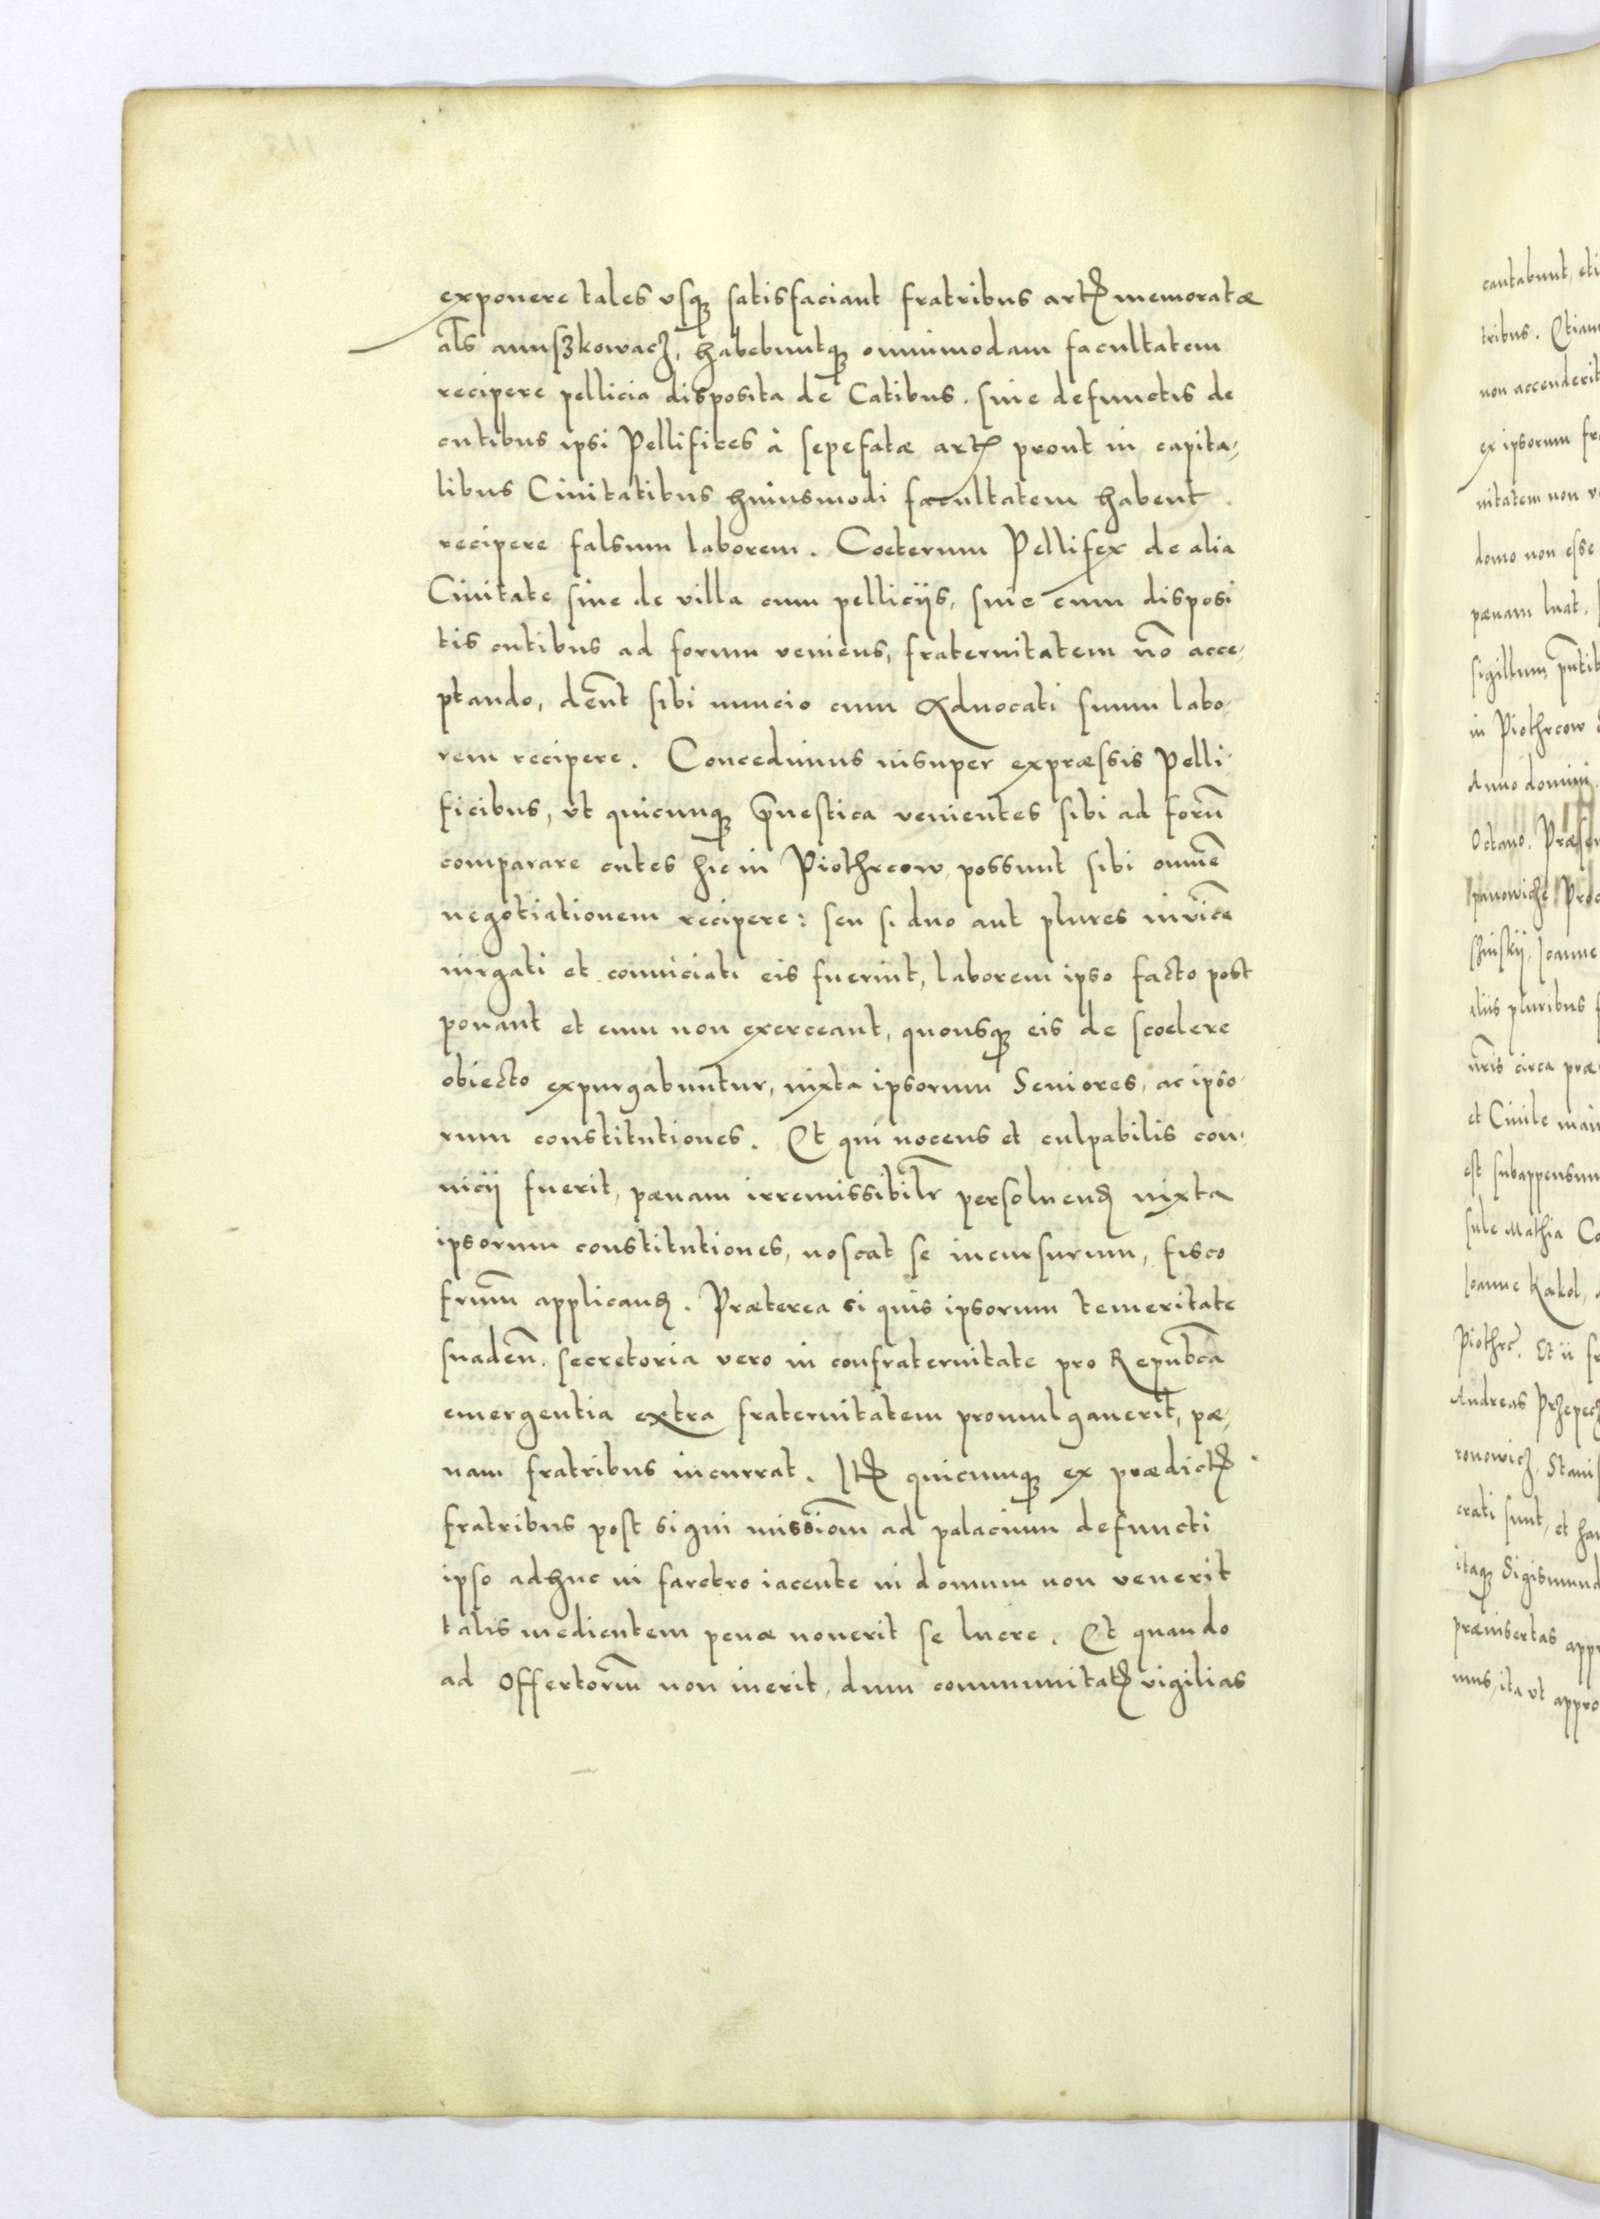 exponere tales vsq satisfaciant fratribus art memoratæ
als amuszkowacz, habebuntq omnimodam facultatem
recipere pellicia disposita de Catibus. siue defunctis de
cutibus ipsi Pellifices à sepefatæ art prout in capita-
libus Ciuitatibus huiusmodi facultatem habent.
recipere falsum laborem. Coeterum Pellifex de alia
Ciuitate siue de villa cum pelliciis, siue cum disposi
tis cutibus ad forum veniens, fraternitatem nō acce-
ptando, dent sibi nuncio cum Aduocati suum labo-
rem recipere. Concedimus insuper expræssis Pelli-
ficibus, vt quicunq venientes sibi ad forū
comparare cutes hic in Piothrcow, possunt sibi omnē
negotiationem recipere: seu si duo aut plures inuicē
iurgati et conuiciati eis fuerint, laborem ipso facto post
ponant et eum non exerceant, quousq eis de scoelere
obiecto expurgabuntur, iuxta ipsorum Seniores, ac ipso-
rum constitutiones. Et qui nocens et culpabilis con-
uicij fuerit, pænam irremissibilr persoluend iuxta
ipsorum constitutiones, noscat se incursurum, fisco
frum applicand. Præterea si quis ipsorum temeritate
suaden. secretoria vero in confraternitate pro Republca
emergentia extra fraternitatem promulgauerit, pæ-
nam fratribus incurrat. Itē quicumq ex prædict
fratribus post signi missiom ad palacium defuncti
ipso adhuc in faretro iacente in domum non venerit
talis medientem penæ nouerit se luere. Et quando
ad Offertorm non iuerit, dum communitat vigilias
cantabunt, eti
tribus. Etiam
non accenderit
ex ipsorum fra
nitatem non
domo non esse
pænam luat.
sigillum pntib
in Piothrcow
Anno domini
Octauo. Præsen
sule Mathia Co
Ioanne Kakol,
Piothrc. Et ii fr
Andreas Przepecz
ronowicz, Stanis
crati sunt, et han
itaq Sigismund
præinsertas appr
mus, ita vt appro